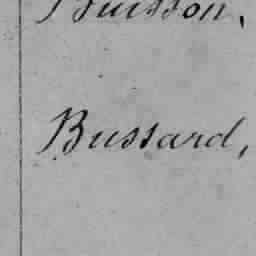 Buisson.
Bussard,